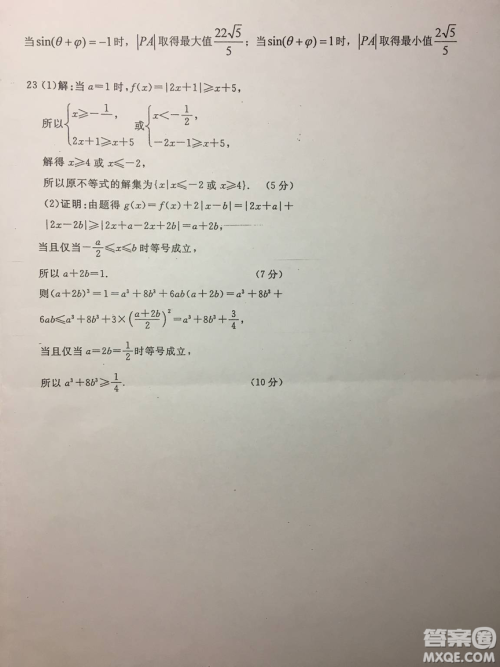 当sin(θ+φ)=-1时，|PA|取得最大值22√5/5；当sin(θ+φ)=1时，|PA|取得最小值2√5/5
23 (1)解：当a=1时，f(x)=|2x+1|≥x+5，
所以{x≥-1/2， 2x+1≥x+5 或{x<-1/2， -2x-1≥x+5，
解得x≥4或x≤-2，
所以原不等式的解集为{x|x≤-2或x≥4}. (5分)
(2)证明：由题得g(x)=f(x)+2|x-b|=|2x+a|+
|2x-2b|≥|2x+a-2x+2b|=a+2b，
当且仅当-a/2≤x≤b时等号成立，
所以a+2b=1. (7分)
则(a+2b)³=1=a³+8b³+6ab(a+2b)=a³+8b³+
6ab≤a³+8b³+3×((a+2b)/2)²=a³+8b³+3/4，
当且仅当a=2b=1/2时等号成立，
所以a³+8b³≥1/4. (10分)
答案圈
MXQE.COM